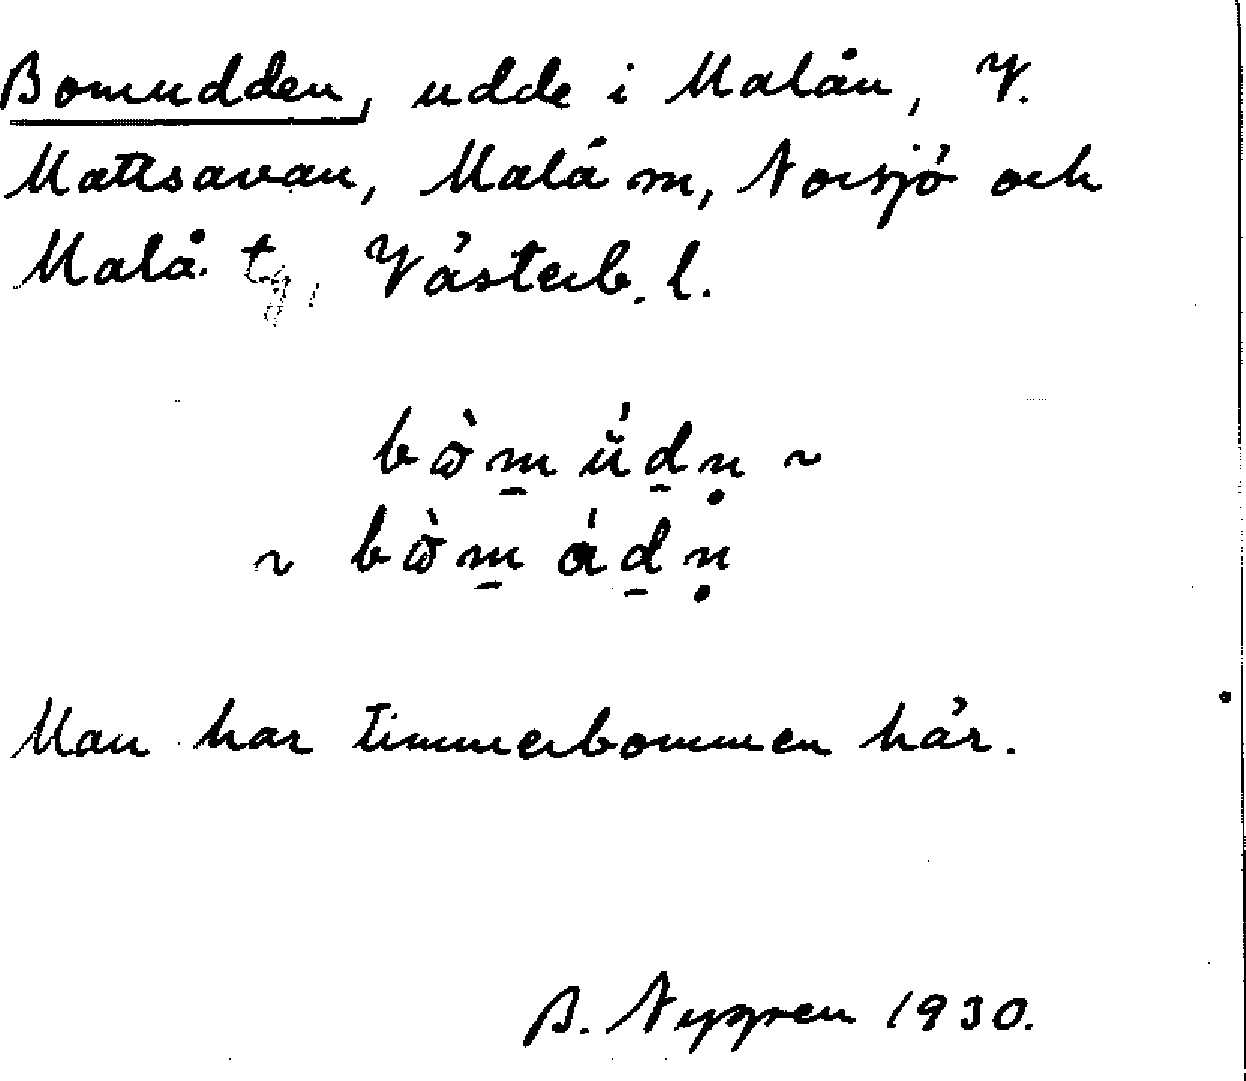 Bomudden, udde i Malån, V.
Mattsavan, Malå m, Norsjö och
Malå tg, Västerb. l.
bɷ̀m̱ ŭ́ḏṇ ~
~ bɷ̀m̱ ɑ́ḏṇ
Man har timmerbommen här.
B. Nygren 1930.